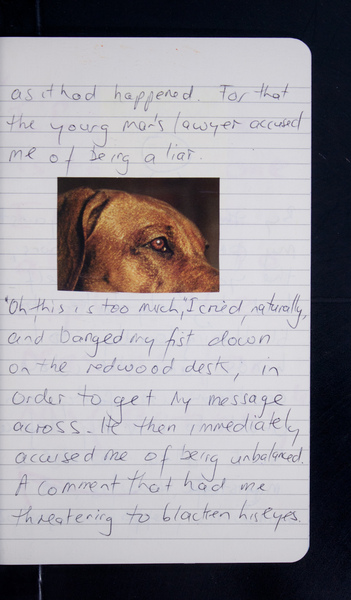 as it had happened. For that
the young man's lawyer accused
me of being a liar.
"Oh, this is too much," I cried, naturally,
and banged my fist down
on the redwood desk, in
order to get my message
across. He then immediately
accused me of being unbalanced.
A comment that had me
threatening to blacken his eyes.